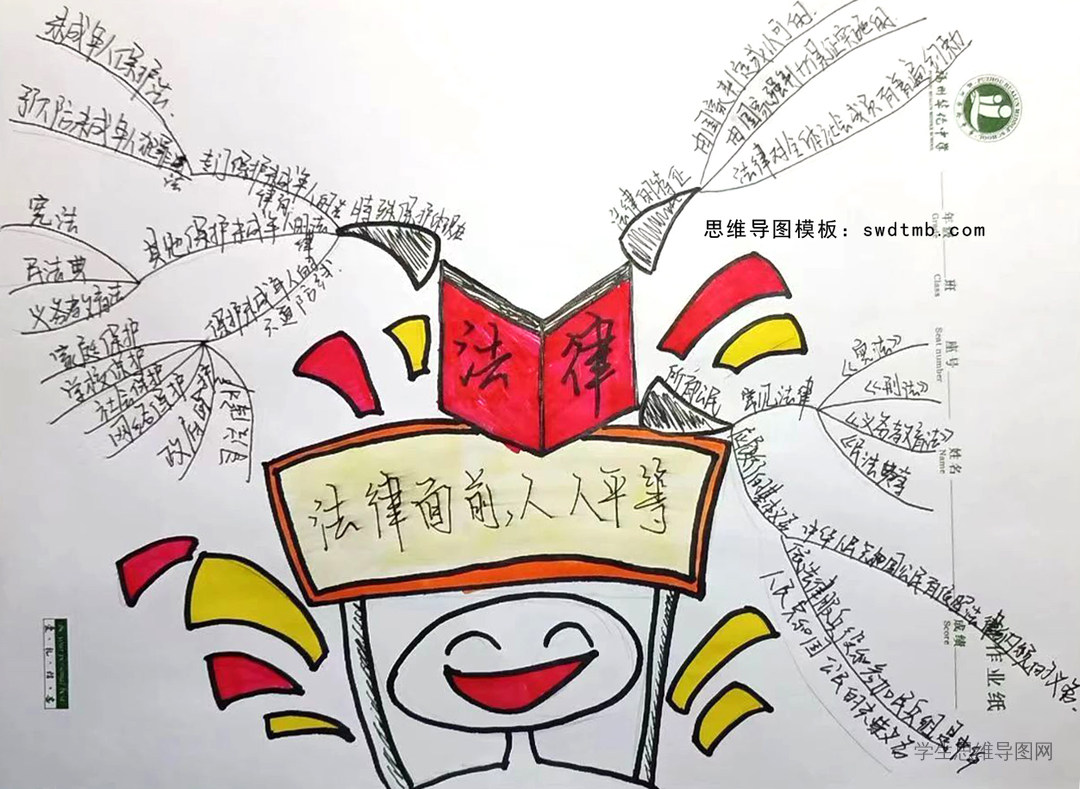 法律
法律面前,人人平等
未成年人保护法
预防未成年人犯罪法
专门保护未成年人的法律有
特殊保护
宪法
民法典
义务教育法
其他保护未成年人的法律
保护未成年人的六道防线
家庭保护
学校保护
社会保护
网络保护
政府保护
司法保护
法律的特征
由国家制定或认可的
由国家强制力保证实施的
法律对全体社会成员有普遍约束
思维导图模板：swdtmb.com
所有公民
常见法律
《宪法》
《刑法》
《义务教育法》
《民法典》
中华人民共和国公民有依照法律纳税的义务.
依法律服兵役和参加民兵组织是中华
人民共和国公民的光荣义务
年级
Grade
班
Class
座号
Seat number
姓名
Name
成绩
Score
作业纸
学生思维导图网